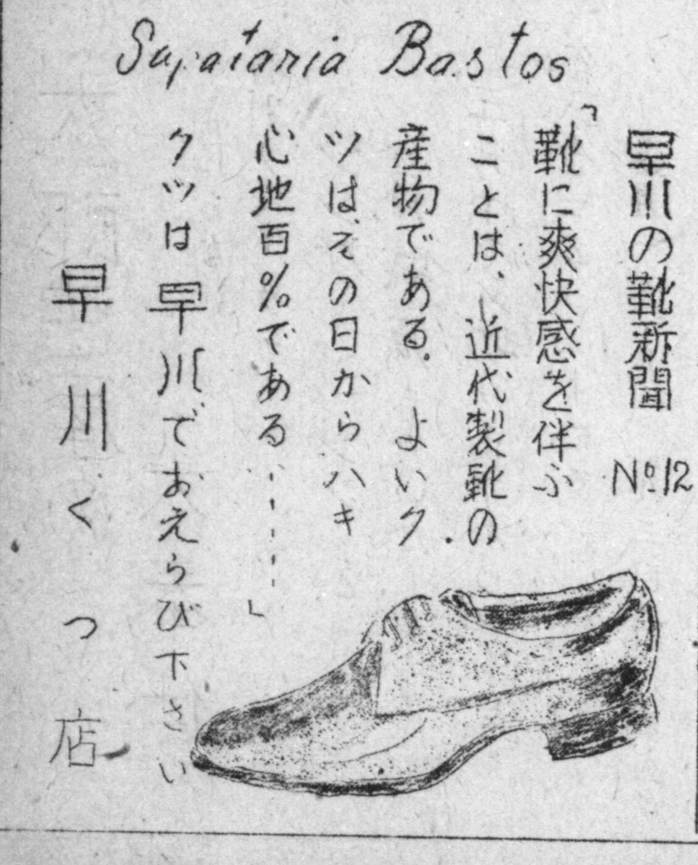 Sapataria Bastos
早川の靴新聞 No.12
「靴に爽快感を伴ふ
ことは、近代製靴の
産物である。よいク
ツは、その日からハキ
心地百%である……」
クツは早川でおえらび下さい
早川くつ店